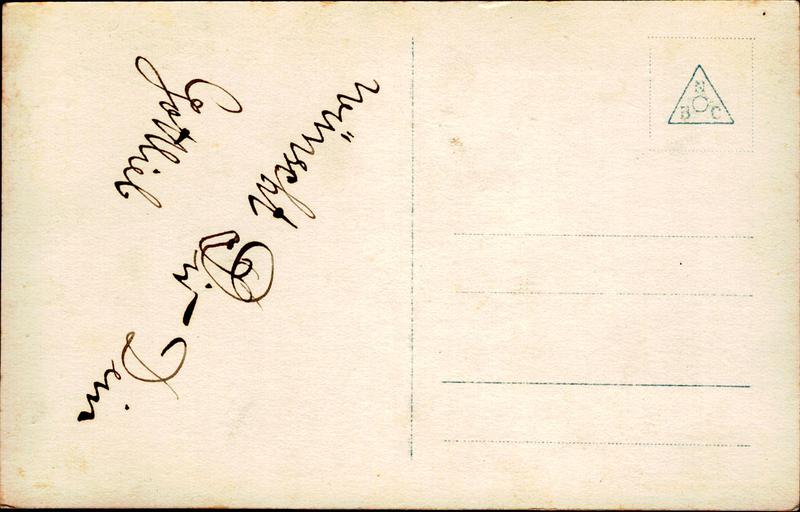 wünscht Dir Dein
Gottlieb
N
B C